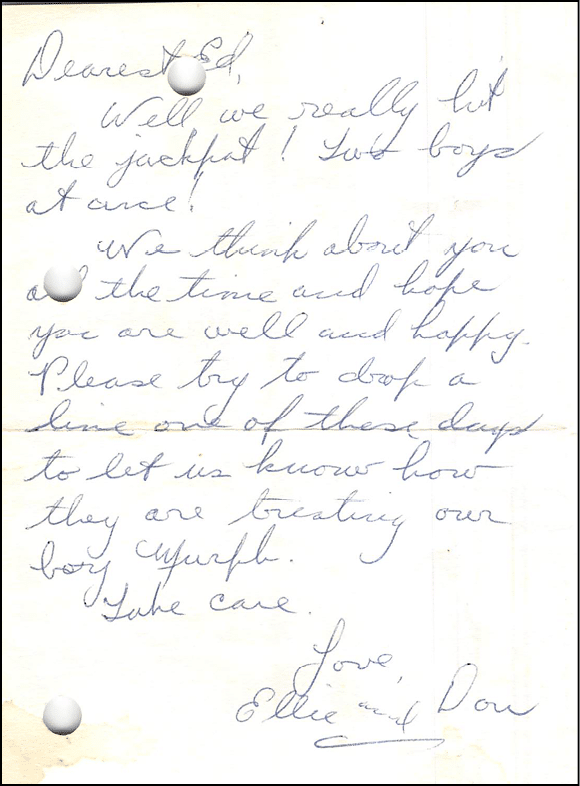 Dearest Ed,
Well we really hit
the jackpot! Two boys
at once!
We think about you
all the time and hope
you are well and happy.
Please try to drop a
line one of these days
to let us know how
they are treating our
boy Murph.
Take care.
Love,
Ellie and Don